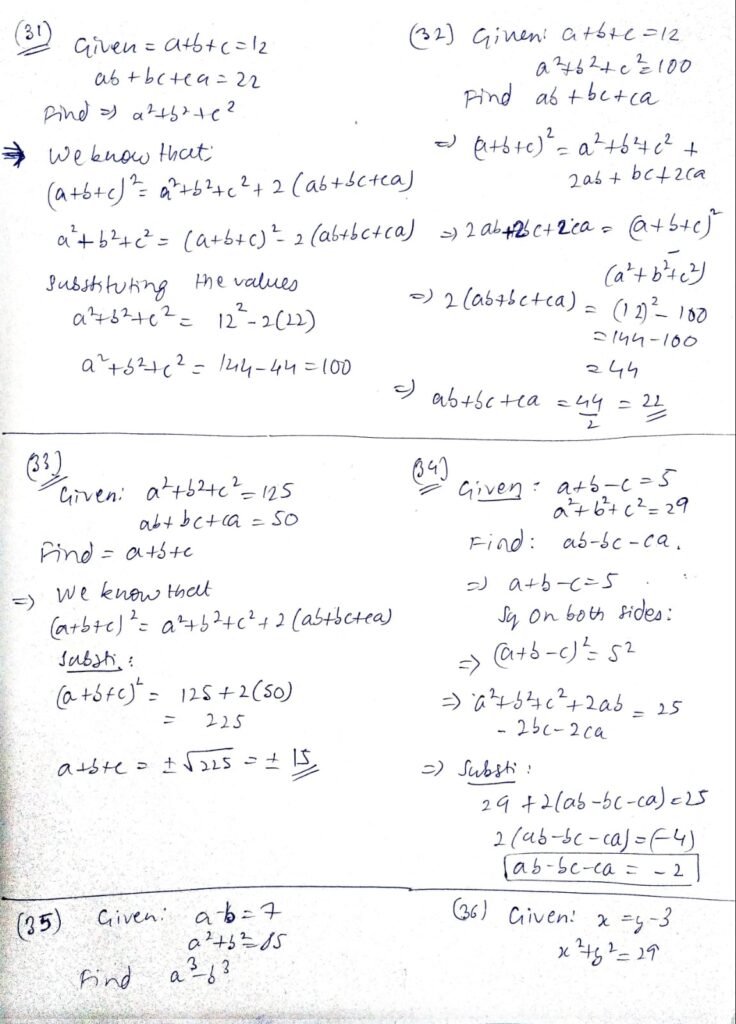 (31) Given = a+b+c=12
ab + bc + ca = 22
Find ⇒ a²+b²+c²
⇒ We know that:
(a+b+c)² = a²+b²+c²+2(ab+bc+ca)
a²+b²+c² = (a+b+c)² - 2(ab+bc+ca)
Substituting the values
a²+b²+c² = 12² - 2(22)
a²+b²+c² = 144-44 = 100
(32) Given: a+b+c = 12
a²+b²+c² = 100
Find ab + bc + ca
⇒ (a+b+c)² = a²+b²+c² +
2ab + bc + 2ca
⇒ 2ab+2bc+2ca = (a+b+c)²
-
(a²+b²+c²)
⇒ 2(ab+bc+ca) = (12)² - 100
= 144-100
= 44
⇒ ab+bc+ca = 44/2 = 22
(33)
Given: a²+b²+c² = 125
ab+bc+ca = 50
Find = a+b+c
⇒ We know that
(a+b+c)² = a²+b²+c²+2(ab+bc+ca)
Substi :
(a+b+c)² = 125+2(50)
= 225
a+b+c = ±√225 = ± 15
(34)
Given : a+b-c = 5
a²+b²+c² = 29
Find: ab-bc-ca.
⇒ a+b-c=5
Sq on both sides:
⇒ (a+b-c)² = 5²
⇒ a²+b²+c²+2ab = 25
- 2bc-2ca
⇒ Substi :
29 + 2(ab-bc-ca) = 25
2(ab-bc-ca) = (-4)
ab-bc-ca = -2
(35) Given: a-b = 7
a²+b² = 85
Find a³-b³
(36) Given: x = y-3
x²+y² = 29